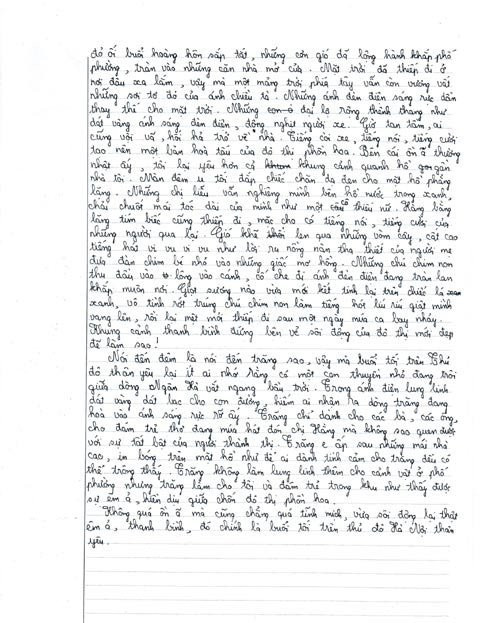 đỏ ối buổi hoàng hôn sắp tắt, những cơn gió đã lồng hành khắp phố
phường, tràn vào những căn nhà mở cửa. Mặt trời đã thiếp đi ở
nơi đâu xa lắm, vậy mà một mảng trời phía tây vẫn còn vương vất
những sợi tơ đỏ của ánh chiều tà. Những ánh đèn điện sáng rực dần
thay thế cho mặt trời. Những con đại lộ rộng thênh thang như
dát vàng ánh sáng đèn điện, đông nghẹt người xe. Giờ tan tầm, ai
cũng vội vã, hối hả trở về nhà. Tiếng còi xe, tiếng nói, tiếng cười
tạo nên một bản hoà tấu của đô thị phồn hoa. Bên cái ồn ã thường
nhật ấy, tôi lại yêu hơn cả khung cảnh quanh hồ gần
nhà tôi. Màn đêm u tối đắp chiếc chăn dạ đen cho mặt hồ phẳng
lặng. Những chị liễu vẫn nghiêng mình bên hồ nước trong xanh,
chải chuốt mái tóc dài của mình như một thiếu nữ. Hàng bằng
lăng tím biếc cũng thiếp đi, mặc cho có tiếng nói, tiếng cười của
những người qua lại. Gió khẽ len qua những vòm cây, cất cao
tiếng hát vi vu vi vu như lời ru nồng nàn tha thiết của người mẹ
đưa đàn chim bé nhỏ vào những giấc mơ hồng. Những chú chim non
thu đầu vào lông vào cánh, cố che đi ánh đèn điện đang tràn lan
khắp muôn nơi. Giọt sương nào vừa mới kết tinh lại trên chiếc lá
xanh, vô tình rớt trúng chú chim non làm tiếng hót líu ríu giật mình
vang lên, rồi lại mệt mỏi thiếp đi sau một ngày múa ca bay nhảy.
Khung cảnh thanh bình đứng bên vẻ sôi động của đô thị mới đẹp
đẽ làm sao!
Nói đến đêm là nói đến trăng sao, vậy mà buổi tối trên Thủ
đô thân yêu lại ít ai nhớ rằng có một con thuyền nhỏ đang trôi
giữa dòng Ngân Hà vắt ngang bầu trời. Trong ánh điện lung linh
dát vàng dát bạc cho con đường, hiếm ai nhận ra dòng trăng đang
hoà vào ánh sáng rực rỡ ấy. Trăng chỉ dành cho các bà, các ông,
cho đám trẻ thơ đang múa hát đón chị Hằng mà không sao quen được
với sự tất bật của người thành thị. Trăng e ấp sau những mái nhà
cao, in bóng trên mặt hồ như để ai dành tình cảm cho trăng đều có
thể trông thấy. Trăng không làm lung linh thêm cho cảnh vật ở phố
phường nhưng trăng làm cho tôi và đám trẻ trong khu như thấy được
sự êm ả, hiền dịu giữa chốn đô thị phồn hoa.
Không quá ồn ã mà cũng chẳng quá tĩnh mịch, vừa sôi động lại thật
êm ả, thanh bình, đó chính là buổi tối trên thủ đô Hà Nội thân
yêu.